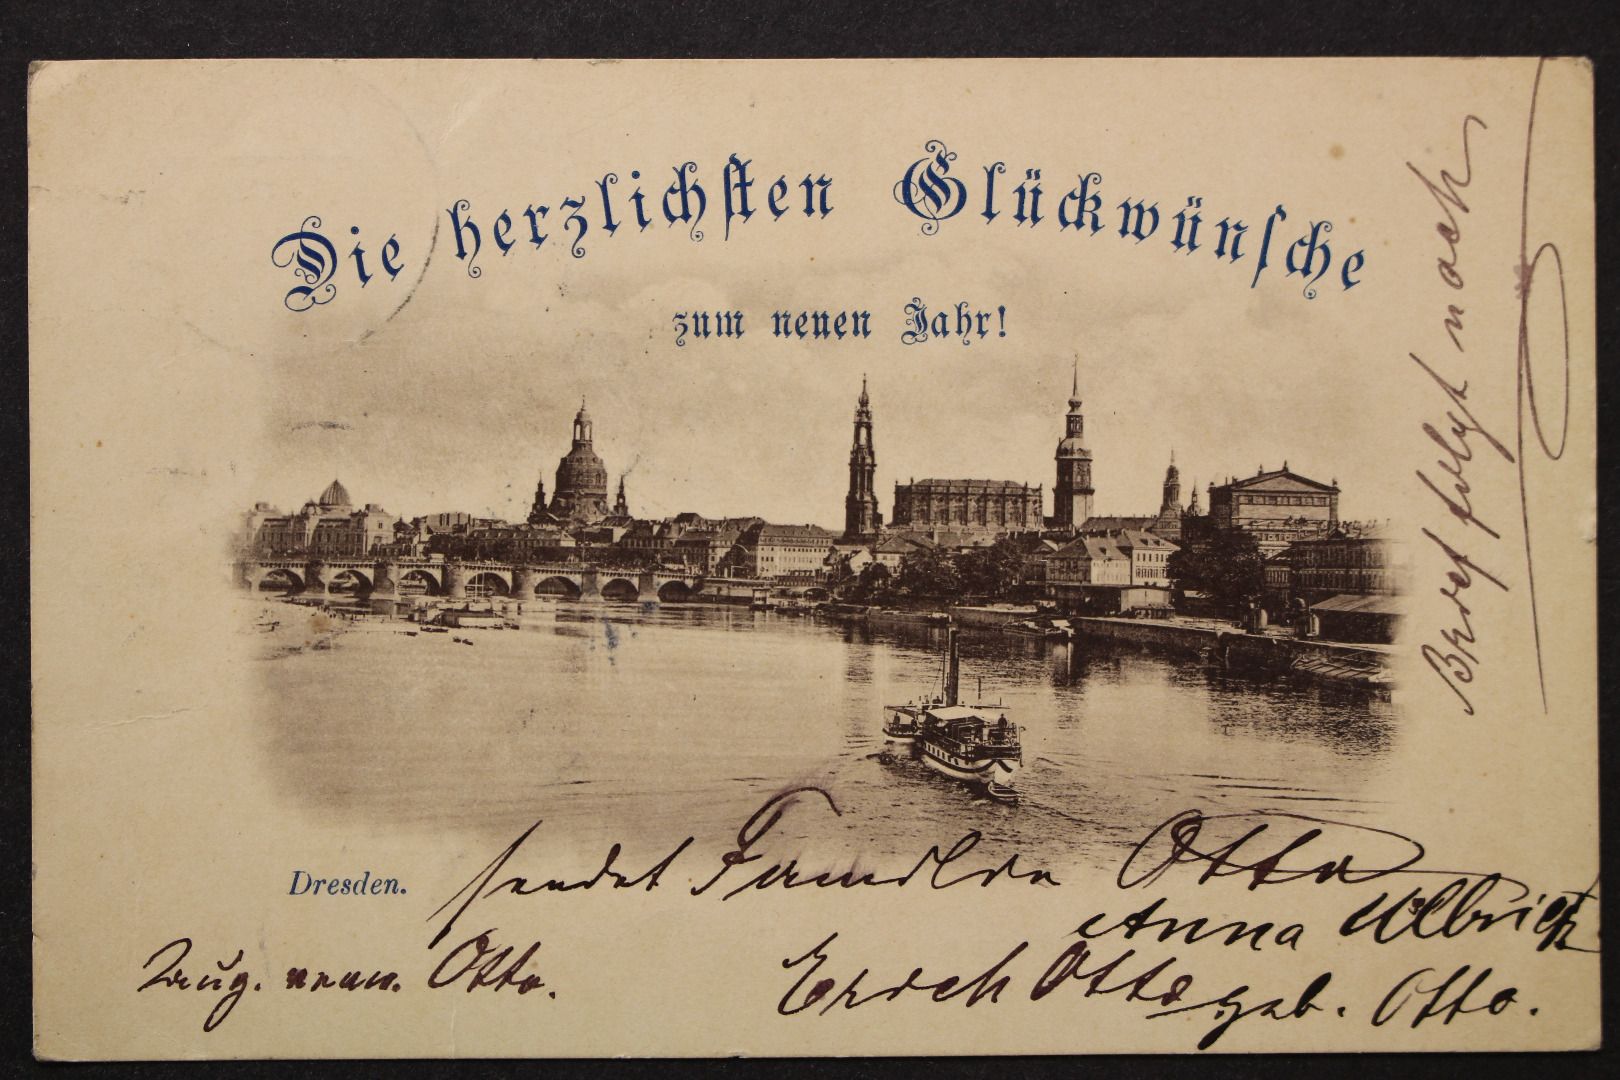 Die herzlichsten Glückwünsche
zum neuen Jahr!
Dresden.
sendet Familie Otto
Anna Ulbricht
geb. Otto.
Erich Otto
Otto.
Brief folgt nach